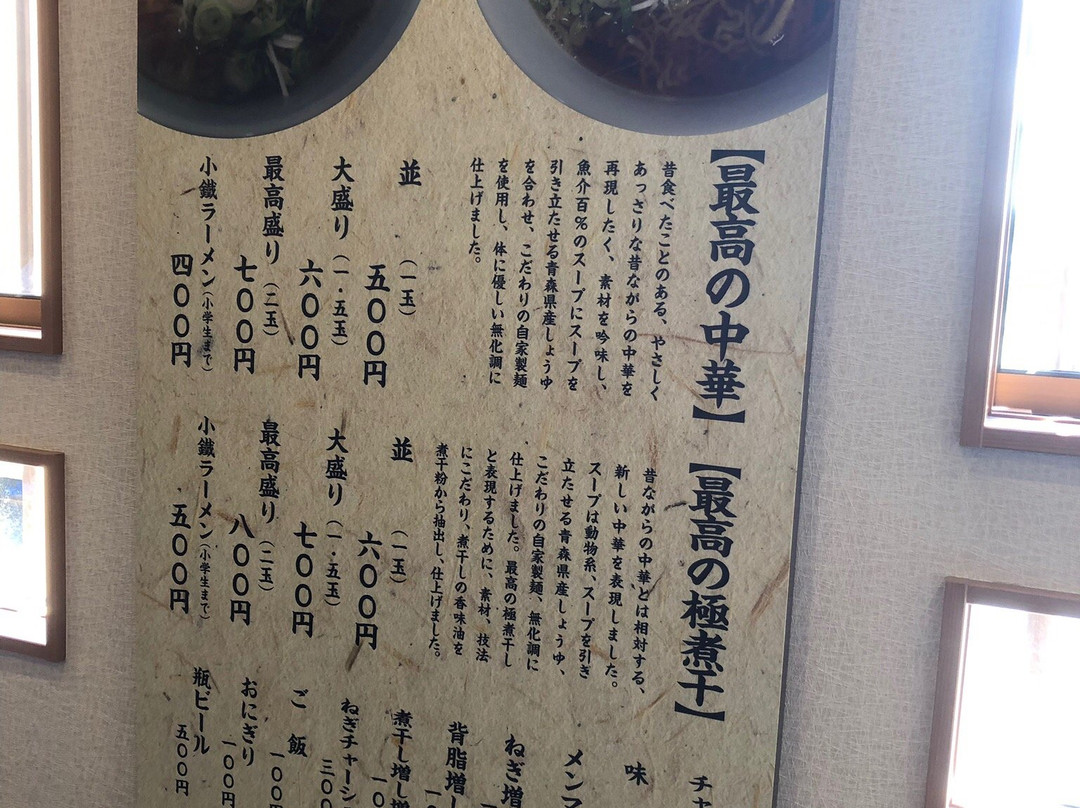 【最高の中華】
昔食べたことのある、やさしく
あっさりな昔ながらの中華を
再現したく、素材を吟味し、
魚介百%のスープにスープを
引き立たせる青森県産しょうゆ
を合わせ、こだわりの自家製麺
を使用し、体に優しい無化調に
仕上げました。
並(一玉)五〇〇円
大盛り(一・五玉)六〇〇円
最高盛り(二玉)七〇〇円
小鐵ラーメン(小学生まで)四〇〇円
【最高の極煮干】
昔ながらの中華とは相対する、
新しい中華を表現しました。
スープは動物系、スープを引き
立たせる青森県産しょうゆ、
こだわりの自家製麺、無化調に
仕上げました。最高の極煮干し
と表現するために、素材、技法
にこだわり、煮干しの香味油を
煮干粉から抽出し、仕上げました。
並(一玉)六〇〇円
大盛り(一・五玉)七〇〇円
最高盛り(二玉)八〇〇円
小鐵ラーメン(小学生まで)五〇〇円
チャ
味
メンマ
ねぎ増
背脂増し
煮干し増し増
ねぎチャーシ
ご飯
おにぎり一〇〇円
瓶ビール五〇〇円